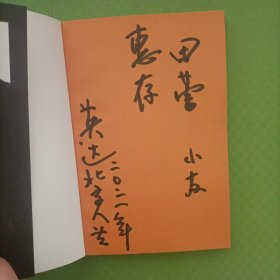 田莹 小友
惠存
英达 北京人艺
二〇二一年